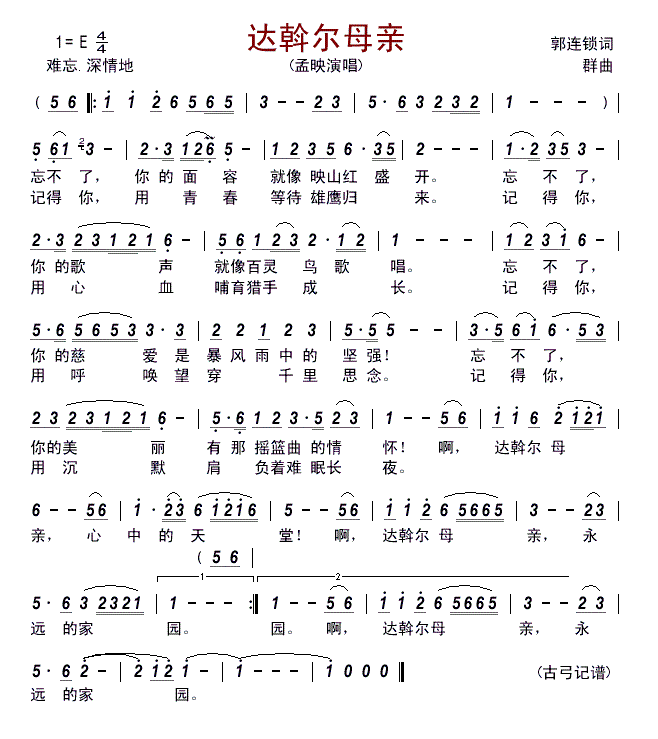 达斡尔母亲
1= E 4/4
郭连锁词
难忘.深情地
(孟映演唱)
群曲
( 5 6 ‖: 1 1 2 6 5 6 5 | 3 - - 2 3 | 5 · 6 3 2 3 2 | 1 - - - ) |
5 6 1 2 3 - | 2 · 3 1 2 6 - | 1 2 3 5 6 · 3 5 | 2 - - - | 1 · 2 3 5 1 - |
忘不了, 你的面容 就像映山红盛开。 忘不了,
记得你, 用青春 等待雄鹰归来。 记得你,
2 · 3 2 3 1 2 1 6 - | 5 6 1 2 3 2 · 1 2 | 1 - - - | 1 2 3 1 6 - |
你的歌声 就像百灵鸟歌唱。 忘不了,
用心血 哺育猎手成长。 记得你,
5 · 6 5 6 5 3 3 · 3 | 2 2 1 2 3 | 5 · 5 5 - | 3 · 5 6 1 6 · 5 3 |
你的慈爱是暴风雨中的坚强! 忘不了,
用呼唤望穿千里思念。 记得你,
2 3 2 3 1 2 1 6 - | 5 · 6 1 2 3 · 5 2 3 | 1 - - 5 6 | 1 1 6 2 1 2 1 |
你的美丽有那摇篮曲的情怀! 啊, 达斡尔母
用沉默肩负着难眠长夜。
6 - - 5 6 | 1 · 2 3 6 1 2 1 6 | 5 - - 5 6 | 1 1 2 6 5 6 6 5 | 3 - - 2 3 |
亲, 心中的天堂! 啊, 达斡尔母亲, 永
( 5 6 |
1 2
5 · 6 3 2 3 2 1 | 1 - - - :‖ 1 - - 5 6 | 1 1 2 6 5 6 6 5 | 3 - - 2 3 |
远的家园。 园。 啊, 达斡尔母亲, 永
5 · 6 2 - | 2 1 2 1 - | 1 - - - | 1 0 0 0 ‖
(古弓记谱)
远的家园。